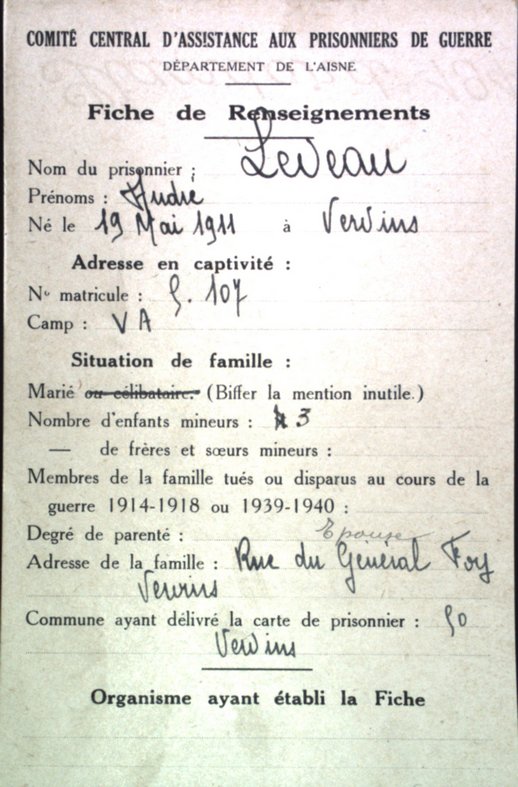 COMITÉ CENTRAL D'ASSISTANCE AUX PRISONNIERS DE GUERRE
DÉPARTEMENT DE L'AISNE
Fiche de Renseignements
Nom du prisonnier : Leveau
Prénoms : André
Né le 19 Mai 1911 à Vervins
Adresse en captivité :
No matricule : 9.107
Camp : V A
Situation de famille :
Marié ou célibataire. (Biffer la mention inutile.)
Nombre d'enfants mineurs : 3
— de frères et sœurs mineurs :
Membres de la famille tués ou disparus au cours de la
guerre 1914-1918 ou 1939-1940 :
Degré de parenté : Epouse
Adresse de la famille : Rue du Général Foy
Vervins
Commune ayant délivré la carte de prisonnier :
Vervins
Organisme ayant établi la Fiche